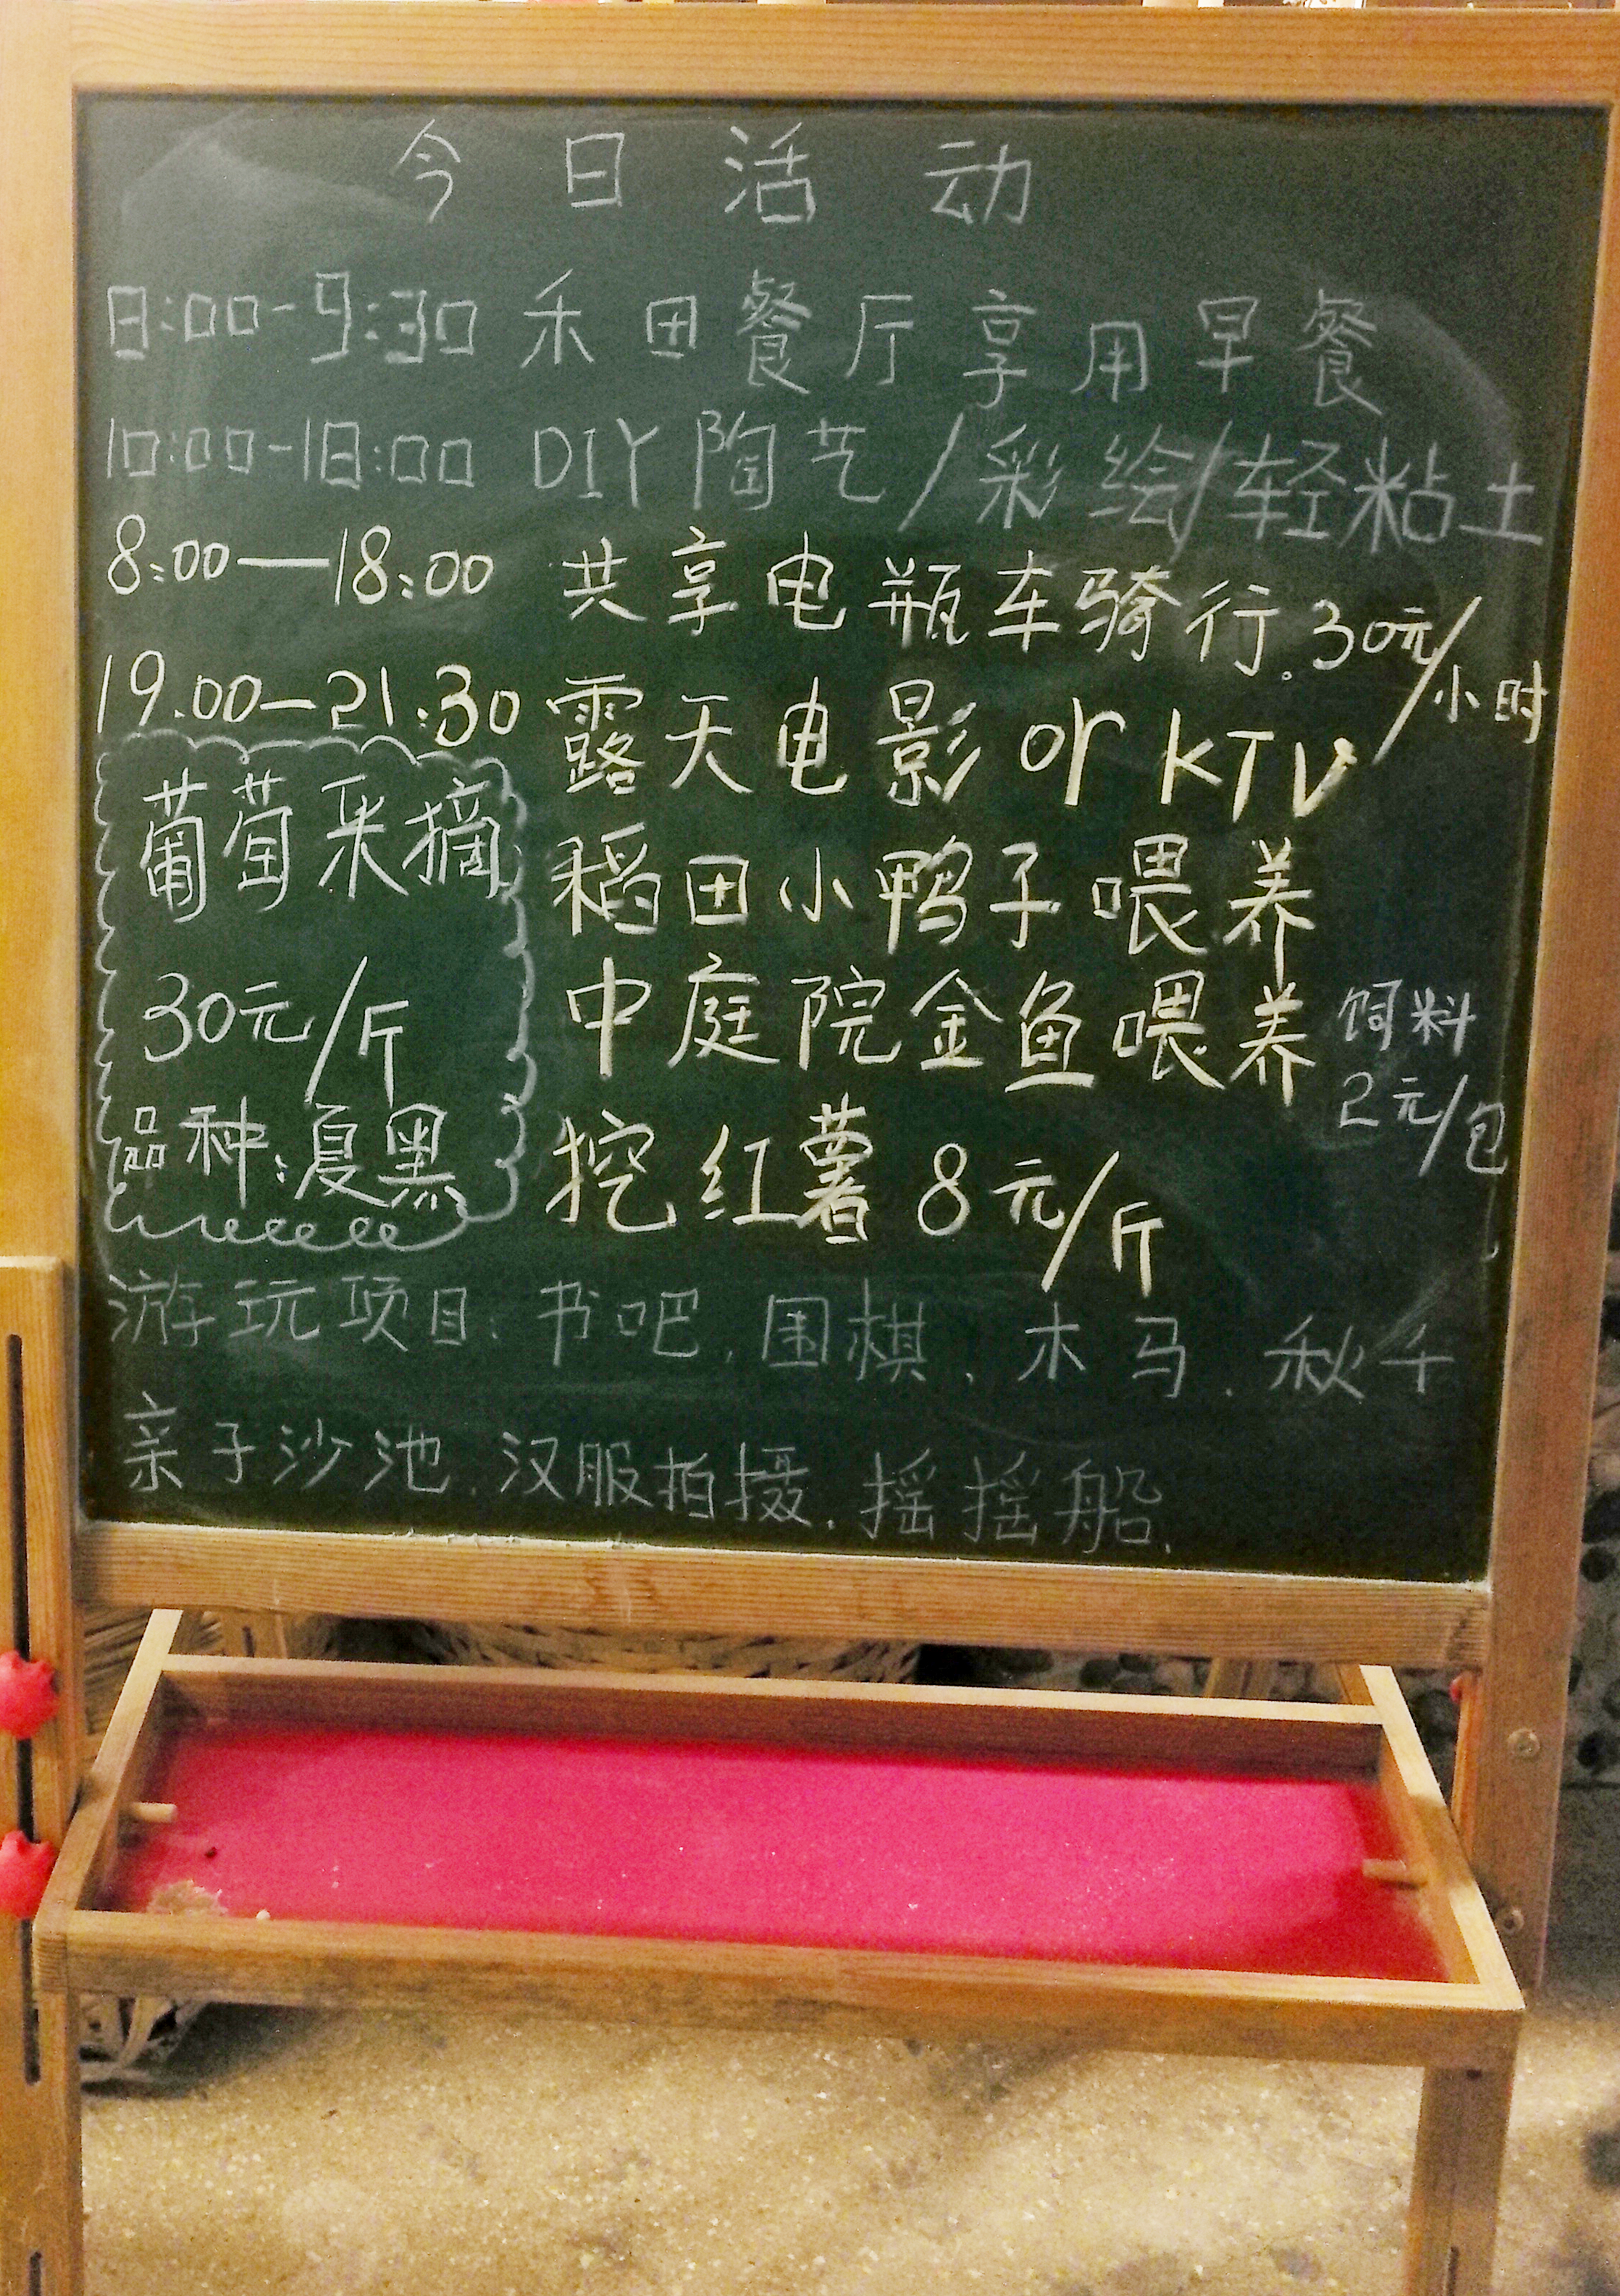 今日活动
8:00-9:30 禾田餐厅享用早餐
10:00-18:00 DIY陶艺/彩绘/轻粘土
8:00—18:00 共享电瓶车骑行.30元/小时
19.00—21:30 露天电影 or KTV
葡萄采摘
30元/斤
品种:夏黑
稻田小鸭子喂养
中庭院金鱼喂养
饲料
2元/包
挖红薯 8元/斤
游玩项目:书吧,围棋、木马、秋千
亲子沙池.汉服拍摄.摇摇船.